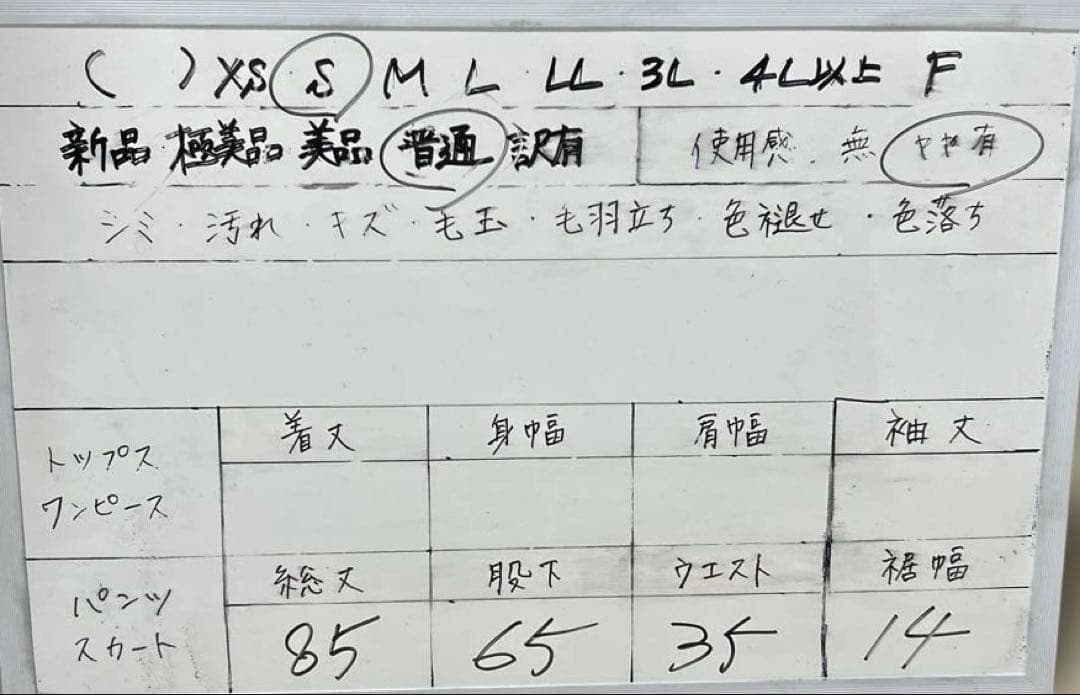 ( ) XS · S M L · LL · 3L · 4L以上 F
新品 極美品 美品 普通 訳有 使用感 . 無 やや有
シミ · 汚れ · キズ · 毛玉 · 毛羽立ち · 色褪せ · 色落ち
着丈 身幅 肩幅 袖丈
トップス
ワンピース
総丈 股下 ウエスト 裾幅
パンツ
スカート
85 65 35 14